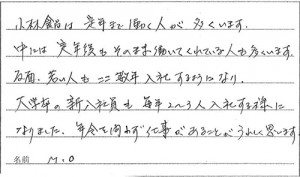 小林食品は定年まで働く人が多くいます。
中には定年後もそのまま働いてくれている人も多くいます。
反面、若い人もここ数年入社するようになり、
大学卒の新入社員も毎年2〜3人入社する様に
なりました。年令を問わず仕事があることがうれしく思います
名前 M.O